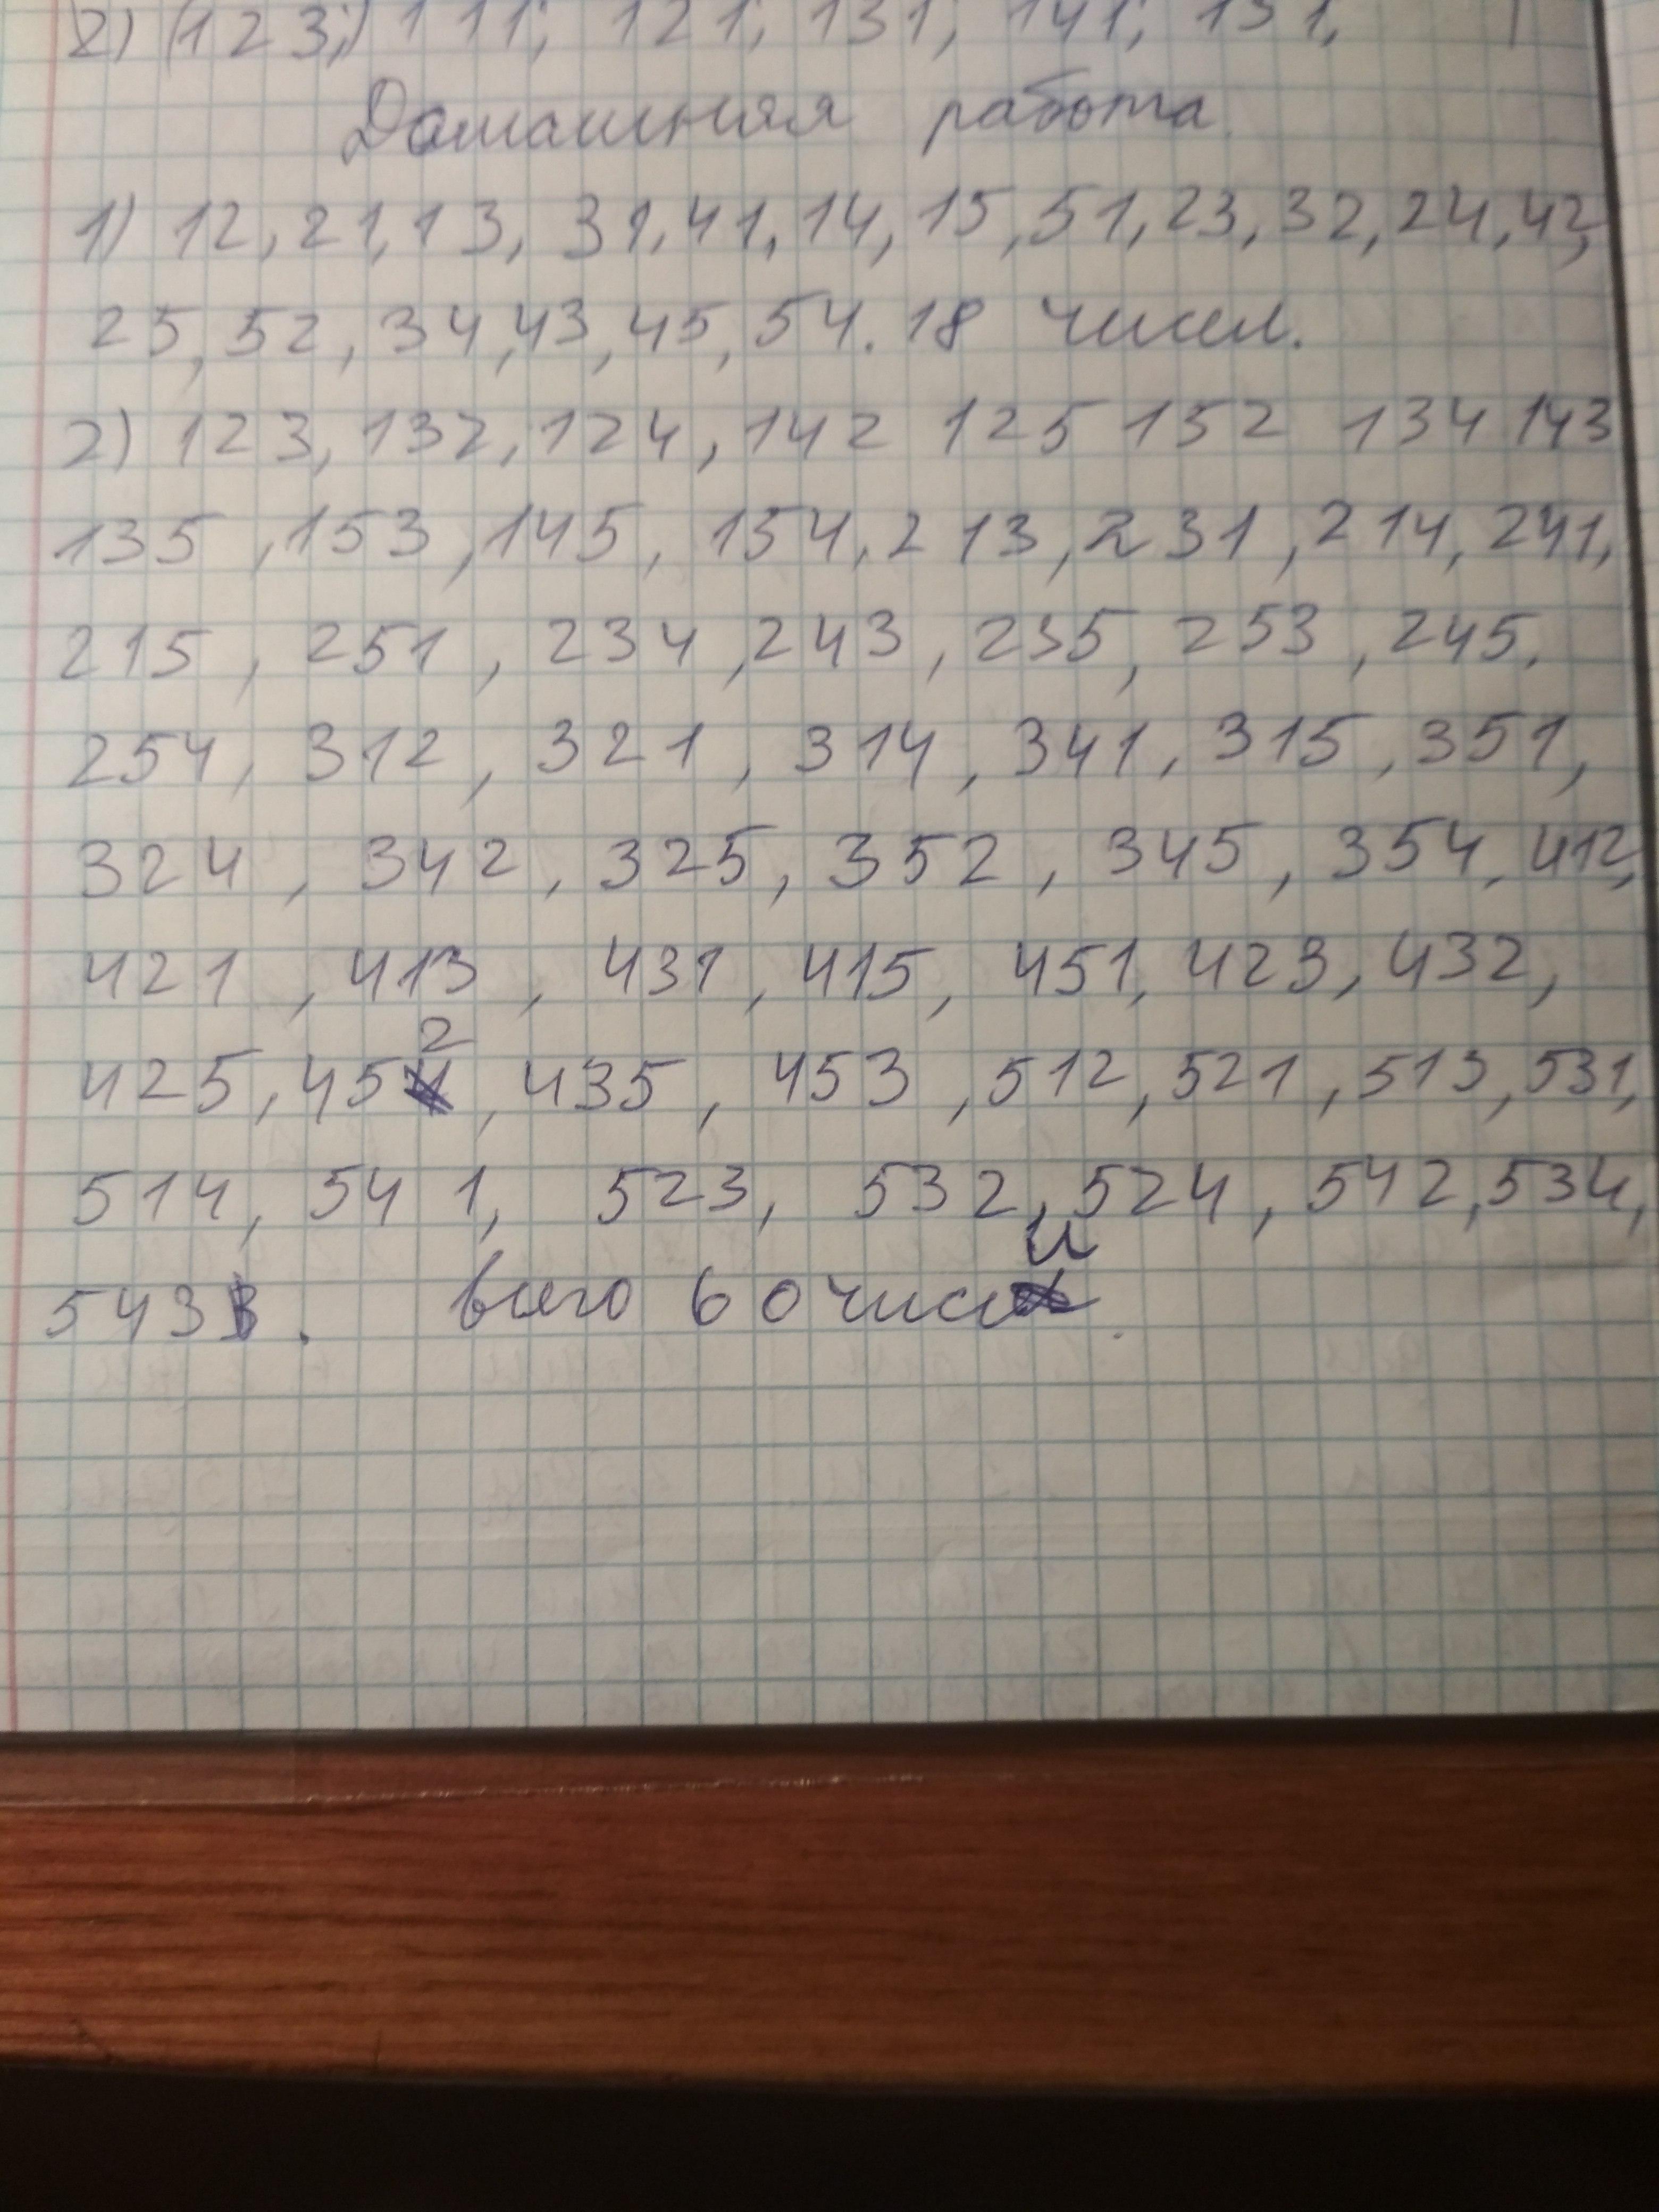 2) (123;) 111; 121; 131; 141; 151;
Домашняя работа.
1) 12, 21, 13, 31, 41, 14, 15, 51, 23, 32, 24, 42,
25, 52, 34, 43, 45, 54. 18 чисел.
2) 123, 132, 124, 142 125 152 134 143
135, 153, 145, 154, 213, 231, 214, 241,
215, 251, 234, 243, 235, 253, 245,
254, 312, 321, 314, 341, 315, 351,
324, 342, 325, 352, 345, 354, 412,
421, 413, 431, 415, 451, 423, 432,
425, 452, 435, 453, 512, 521, 513, 531,
514, 541, 523, 532, 524, 542, 534,
543. всего 60